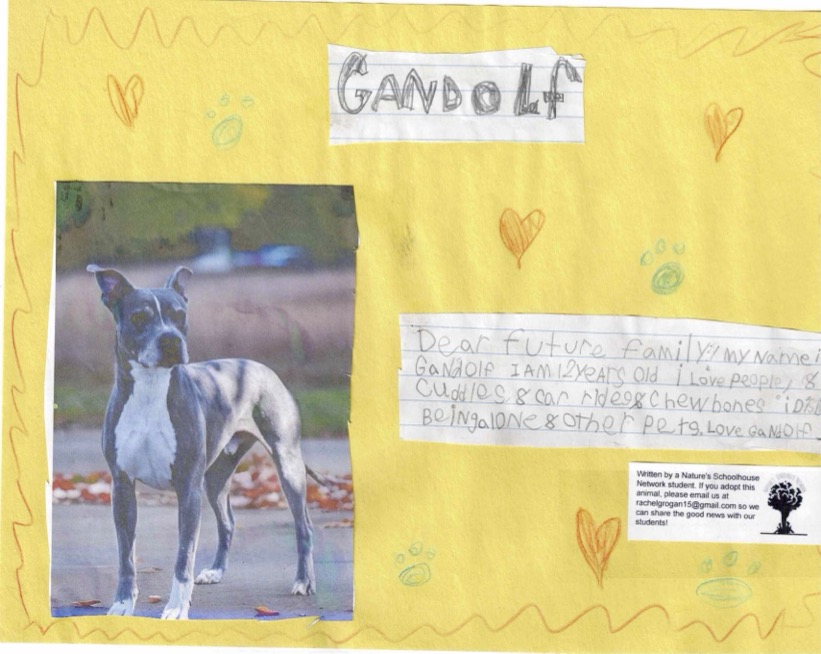 GANDOLF
Dear future family! my Name i
GaNdolf I AM 12 YEARS Old i Love people, &
Cuddles & car rides & Chew bones "i Disl
Being alone & other Pets. Love GaNdolf
Written by a Nature's Schoolhouse
Network student. If you adopt this
animal, please email us at
rachelgrogan15@gmail.com so we
can share the good news with our
students!